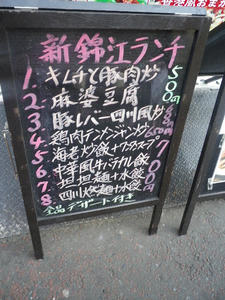 新錦江ランチ
1. キムチと豚肉炒
2. 麻婆豆腐
3. 豚レバー四川風炒
4. 鶏肉テンメンジャン炒
5. 海老炒飯+ワンタンスープ
6. 中華風牛バラカレー飯
7. 担担麺+水餃
8. 四川燃麺+水餃
500円
700円
全品デザート付き